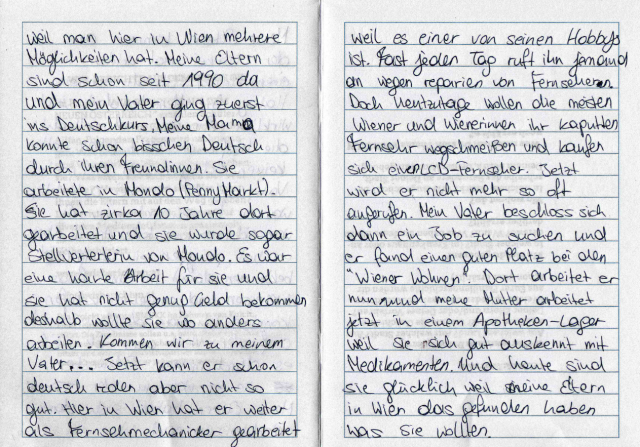 weil man hier in Wien mehrere
Möglichkeiten hat. Meine Eltern
sind schon seit 1990 da
und mein Vater ging zuerst
ins Deutschkurs. Meine Mama
konnte schon bisschen Deutsch
durch ihren Freundinnen. Sie
arbeitete in Mondo (PennyMarkt).
Sie hat zirka 10 Jahre dort
gearbeitet und sie wurde sogar
Stellverterterin von Mondo. Es war
eine harte Arbeit für sie und
sie hat nicht genug Geld bekommen
deshalb wollte sie wo anders
arbeiten. Kommen wir zu meinem
Vater... Jetzt kann er schon
deutsch reden aber nicht so
gut. Hier in Wien hat er weiter
als Fernsehmechanicker gearbeitet
weil es einer von seinen Hobbys
ist. Fast jeden Tag ruft ihn jemand
an wegen reparien von Fernseheren.
Doch heutzutage wollen die meisten
Wiener und Wienerinnen ihr kaputten
Fernsehr wegschmeißen und kaufen
sich einen LCD-Fernseher. Jetzt
wird er nicht mehr so oft
angerufen. Mein Vater beschloss sich
dann ein Job zu suchen und
er fand einen guten Platz bei den
"Wiener Wohnen". Dort arbeitet er
nun und meine Mutter arbeitet
jetzt in einem Apotheken-Lager
weil sie sich gut auskennt mit
Medikamenten. Und heute sind
sie glücklich weil meine Eltern
in Wien das gefunden haben
was sie wollten.